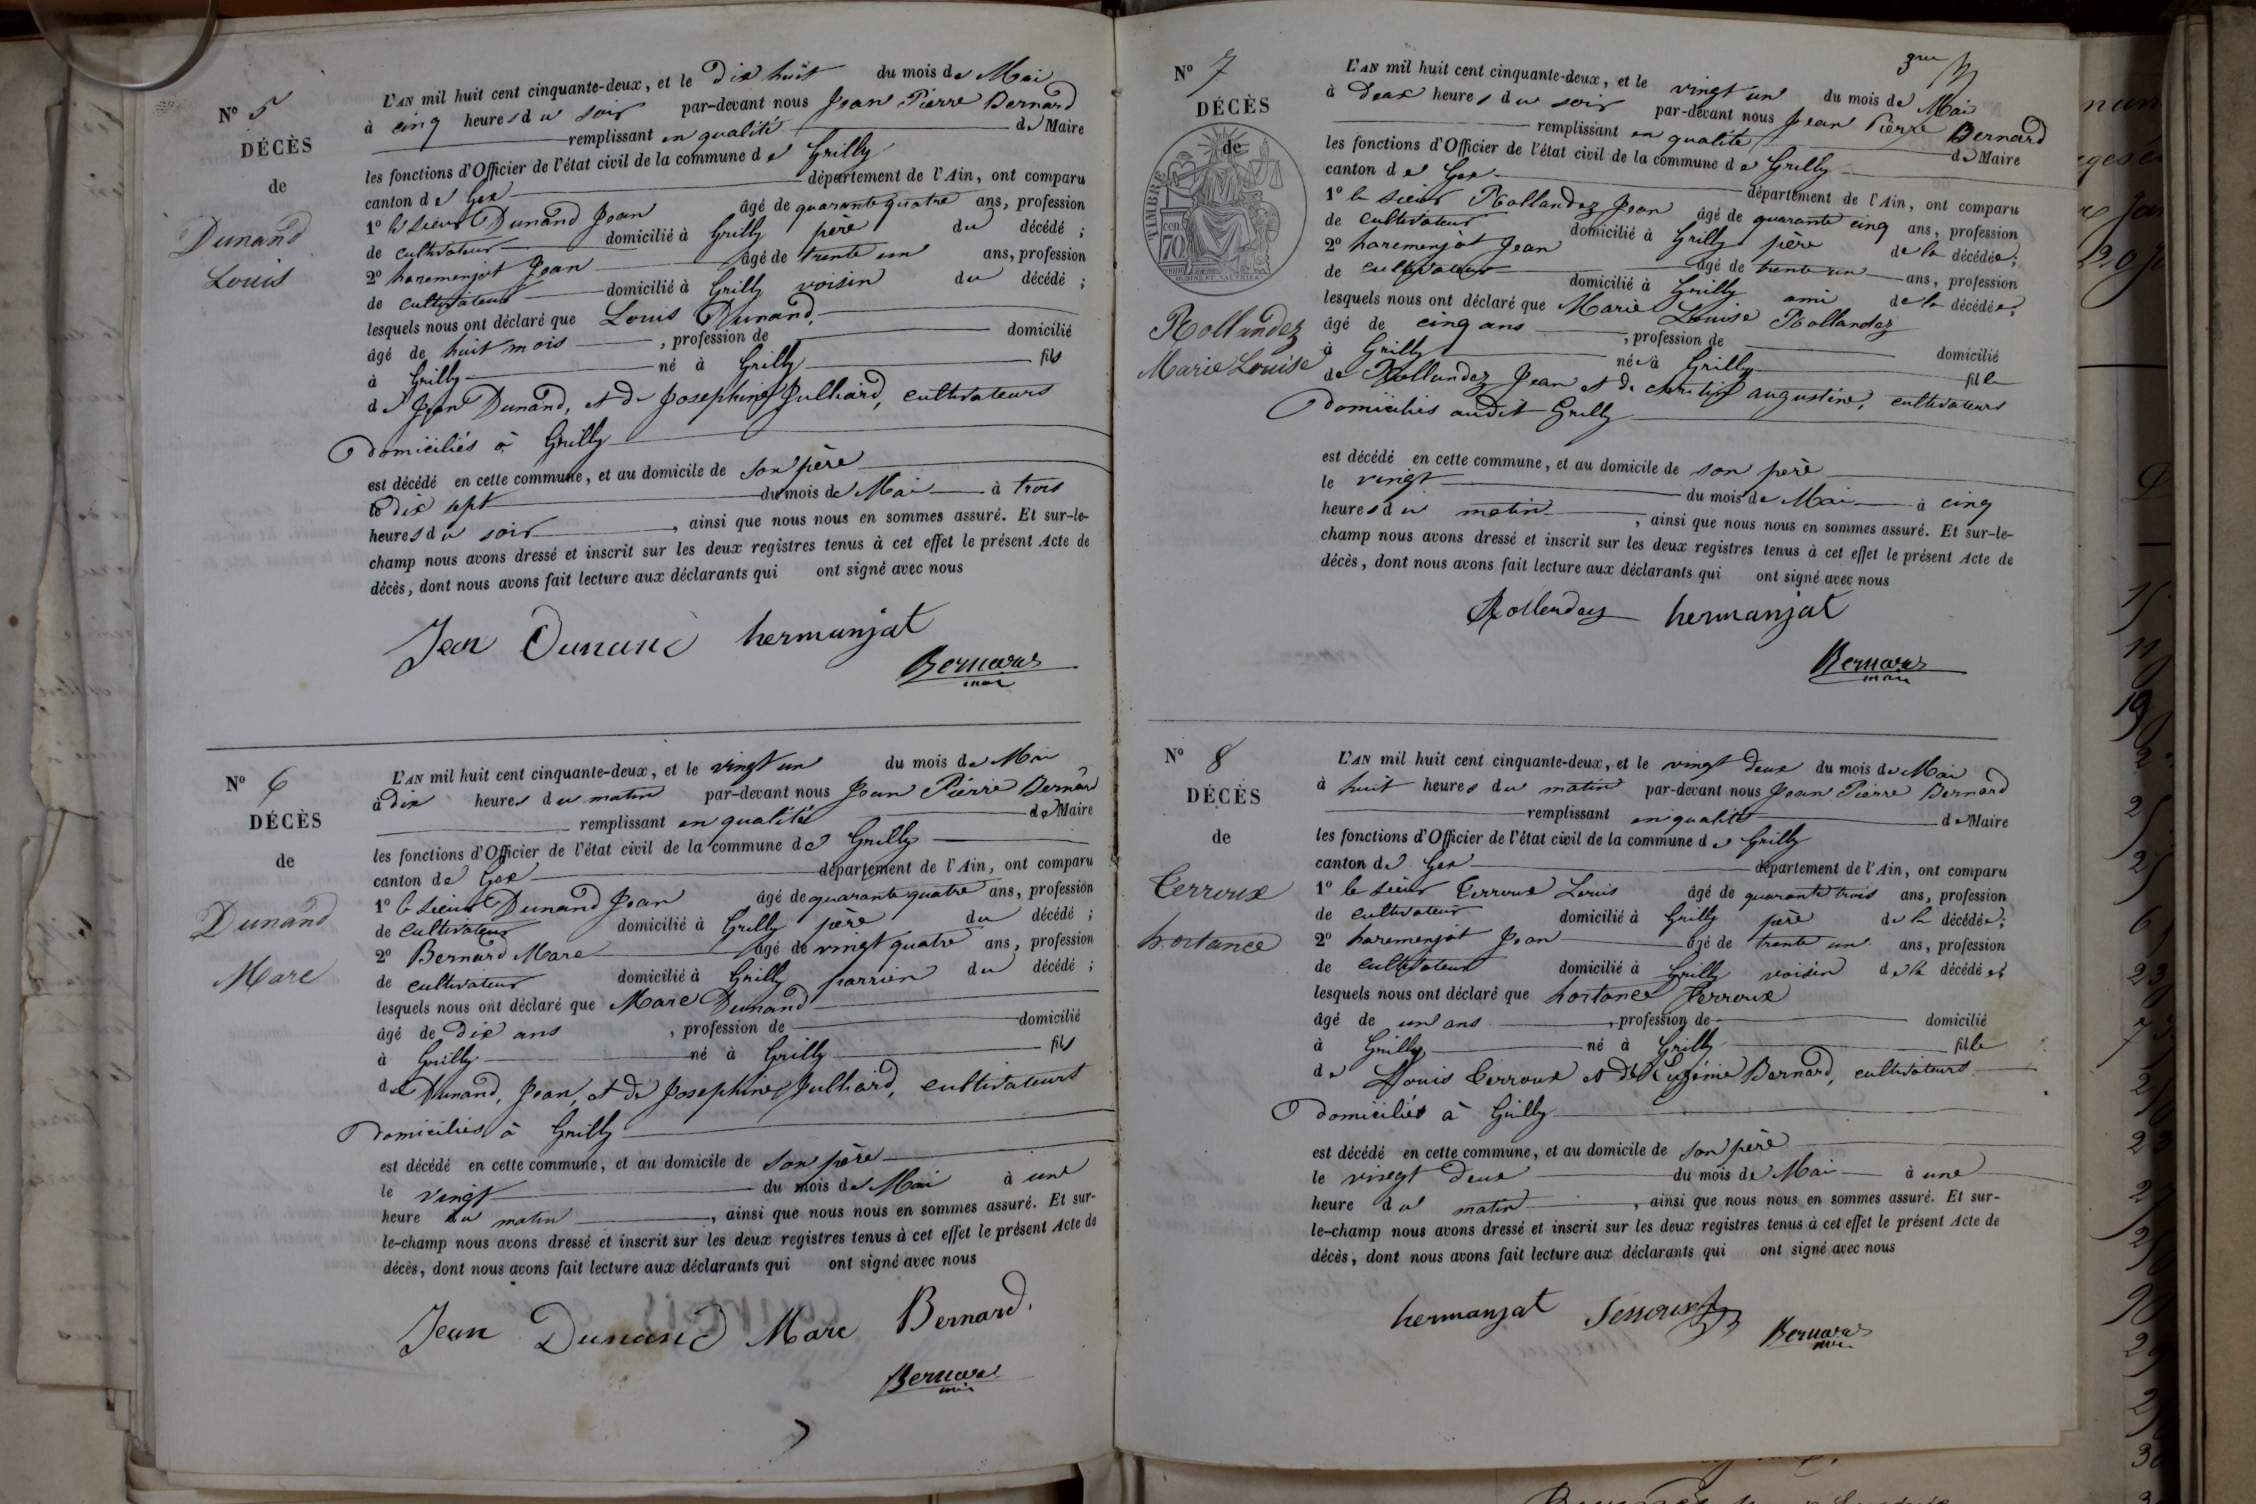 N° 5
DÉCÈS
de
Dunand
Louis
L'AN mil huit cent cinquante-deux, et le dix huit du mois de Mai
à cinq heures du soir par-devant nous Jean Pierre Bernard
remplissant en qualité de Maire
les fonctions d'Officier de l'état civil de la commune de Grilly
canton de Gex département de l'Ain, ont comparu
1° le sieur Dunand Jean âgé de quarante quatre ans, profession
de cultivateur domicilié à Grilly père du décédé ;
2° haremenjat Jean âgé de trente un ans, profession
de cultivateur domicilié à Grilly voisin du décédé ;
lesquels nous ont déclaré que Louis Dunand,
âgé de huit mois , profession de domicilié
à Grilly né à Grilly fils
de Jean Dunand, et de Josephine Julliard, cultivateurs
Domiciliés à Grilly
est décédé en cette commune, et au domicile de son père
le dix sept du mois de Mai à trois
heures du soir , ainsi que nous nous en sommes assuré. Et sur-le-
champ nous avons dressé et inscrit sur les deux registres tenus à cet effet le présent Acte de
décès, dont nous avons fait lecture aux déclarants qui ont signé avec nous
Jean Dunand hermanjat
Bernard
maire
N° 6
DÉCÈS
de
Dunand
Marc
L'AN mil huit cent cinquante-deux, et le vingt un du mois de Mai
à dix heures du matin par-devant nous Jean Pierre Bernard
remplissant en qualité de Maire
les fonctions d'Officier de l'état civil de la commune de Grilly
canton de Gex département de l'Ain, ont comparu
1° le sieur Dunand Jean âgé de quarante quatre ans, profession
de cultivateur domicilié à Grilly père du décédé ;
2° Bernard Marc âgé de vingt quatre ans, profession
de cultivateur domicilié à Grilly parrien du décédé ;
lesquels nous ont déclaré que Marc Dunand
âgé de dix ans , profession de domicilié
à Grilly né à Grilly fils
de Dunand, Jean, et de Josephine Julliard, cultivateurs
Domiciliés à Grilly
est décédé en cette commune, et au domicile de son père
le vingt du mois de Mai à une
heure du matin , ainsi que nous nous en sommes assuré. Et sur-
le-champ nous avons dressé et inscrit sur les deux registres tenus à cet effet le présent Acte de
décès, dont nous avons fait lecture aux déclarants qui ont signé avec nous
Jean Dunand Marc Bernard.
Bernard
maire
N° 7
DÉCÈS
de
TIMBRE
CEN
70
Rollandez
Marie Louise
L'AN mil huit cent cinquante-deux, et le vingt un du mois de Mai
à deux heures du soir par-devant nous Jean Pierre Bernard
remplissant en qualité de Maire
les fonctions d'Officier de l'état civil de la commune de Grilly
canton de Gex département de l'Ain, ont comparu
1° le sieur Rollandez Jean âgé de quarante cinq ans, profession
de cultivateur domicilié à Grilly père de la décédée ;
2° haremenjat Jean âgé de trente un ans, profession
de cultivateur domicilié à Grilly ami de la décédée ;
lesquels nous ont déclaré que Marie Louise Rollandez
âgé de cinq ans , profession de domicilié
à Grilly née à Grilly fille
de Rollandez Jean et de augustine, cultivateurs
Domiciliés audit Grilly
est décédé en cette commune, et au domicile de son père
le vingt du mois de Mai à cinq
heures du matin , ainsi que nous nous en sommes assuré. Et sur-le-
champ nous avons dressé et inscrit sur les deux registres tenus à cet effet le présent Acte de
décès, dont nous avons fait lecture aux déclarants qui ont signé avec nous
Rollendez hermanjat
Bernard
maire
N° 8
DÉCÈS
de
Terroux
hortance
L'AN mil huit cent cinquante-deux, et le vingt deux du mois de Mai
à huit heures du matin par-devant nous Jean Pierre Bernard
remplissant en qualité de Maire
les fonctions d'Officier de l'état civil de la commune de Grilly
canton de Gex département de l'Ain, ont comparu
1° le sieur Terroux Louis âgé de quarante trois ans, profession
de cultivateur domicilié à Grilly père de la décédée ;
2° haremenjat Jean âgé de trente un ans, profession
de cultivateur domicilié à Grilly voisin de la décédée ;
lesquels nous ont déclaré que hortance Terroux
âgé de un ans , profession de domicilié
à Grilly né à Grilly fille
de Louis Terroux et d'Eugénie Bernard, cultivateurs
Domiciliés à Grilly
est décédé en cette commune, et au domicile de son père
le vingt deux du mois de Mai à une
heure du matin , ainsi que nous nous en sommes assuré. Et sur-
le-champ nous avons dressé et inscrit sur les deux registres tenus à cet effet le présent Acte de
décès, dont nous avons fait lecture aux déclarants qui ont signé avec nous
hermanjat Terroux
Bernard
maire